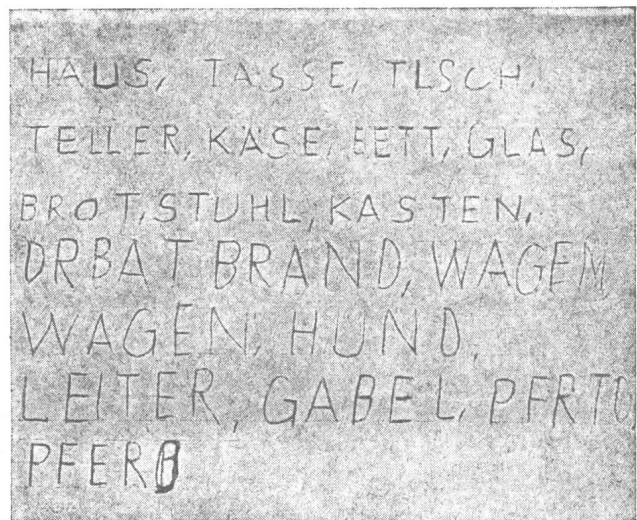 HAUS, TASSE, TLSCH,
TELLER, KÄSE, BETT, GLAS,
BROT, STUHL, KASTEN,
DRBAT BRAND, WAGEM
WAGEN, HUND,
LEITER, GABEL, PFRTO
PFERB